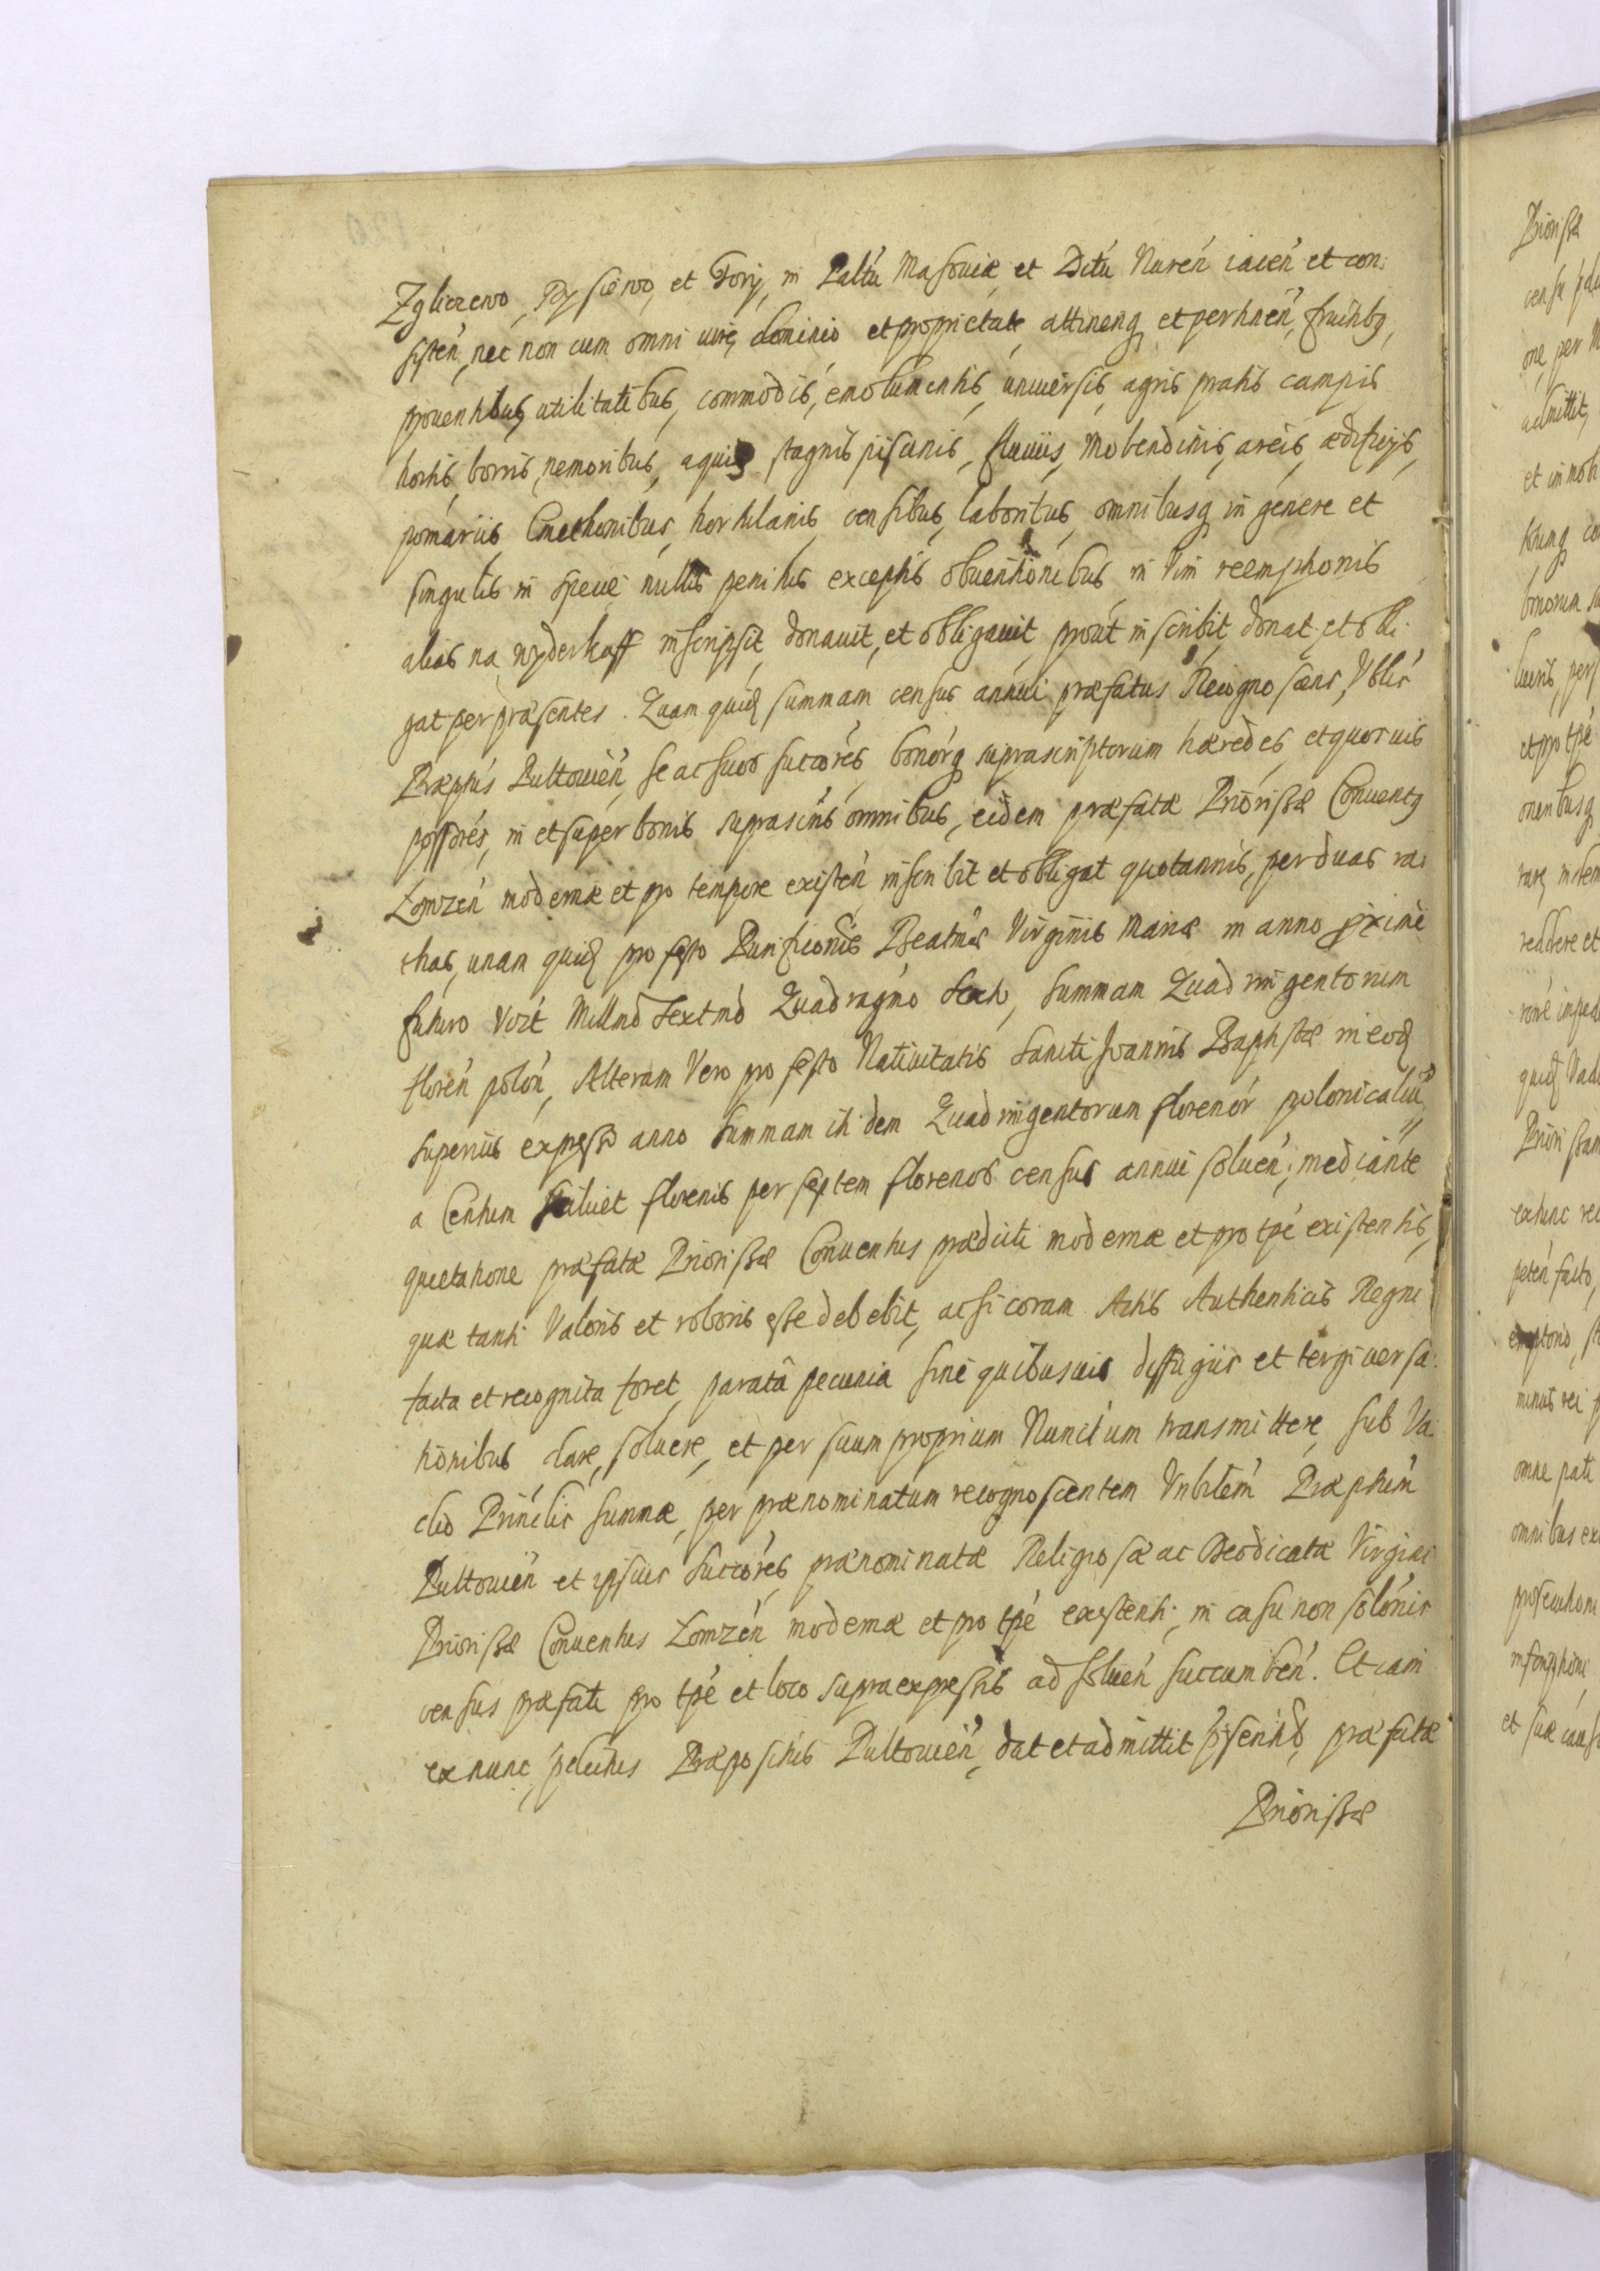 Zgliczewo, Rysiewo, et Tory, in Pałtu Masoviæ et Dctu Nuren iacen et con:
sisten, nec non cum omni iure, dominio et proprietate attinenq et pertinen, fructibq,
prouentibus, utilitatibus, commodis, emolumentis, uniuersis, agris pratis campis
hortis, borris, nemoribus, aquis stagnis piscinis, fluuiis, molendinis, areis, ædificijs,
pomariis, Cmethonibus, hortulanis, censibus, laboribus, omnibusq in genere et
singulis in specie nullis penitus exceptis obuentionibus, in Vim reemptionis
alias na wyderkaff inscripsit, donauit, et obligauit, prout inscribit, donat et obli:
gat per præsentes. Quam quid summam census annui præfatus Recognoscens, Vblis
Præptus Pultouien, se ac suos succores, bonorq suprascriptorum hæredes, et quosuis
possores, in et super bonis suprascris omnibus, eidem præfatæ Priorissæ Conventq
Lomzen modernæ et pro tempore existen inscribit et obligat quotannis, per duas ra:
thas, unam quid pro festo Purificionis Beatmæ Virginis Mariæ in anno pximè
futuro Vizt Millmo Sextmo Quadragmo Sexto, summam Quadringentorum
floren polon, Alteram Vero pro festo Natiuitatis Sancti Joannis Baptistæ in eod
superius expresso anno Summam itidem Quadringentorum florenor polonicaliu
a Centum scilicet florenis per septem florenos census annui soluen, mediante
quietatione præfatæ Priorissæ Conventus prædicti modernæ et pro tpe existentis,
quæ tanti Valoris et roboris esse debebit, ac si coram Actis Authenticis Regni
facta et recognita foret, paratâ pecunia sine quibusuis diffugiis et tergiuersa:
tionibus dare, soluere, et per suum proprium Nuncium transmittere, sub Va:
dio Princlis summæ, per prænominatum recognoscentem Vnblem Præptum
Pultouien et ipsius succores, prænominatæ Religiosæ ac Deodicatæ Virgini
Priorissæ Conventus Lomzen modernæ et pro tpe existenti, in casu non solonis
census præfati pro tpe et loco supraexpressis ad soluen succumben. Et iam
ex nunc, pdictus Præpositus Pultouien, dat et admittit psentib, præfatæ
Priorissæ
Priorissæ
one, per
admittit,
et in mob
bonorum
reddere et
omne
omnibus
et suæ